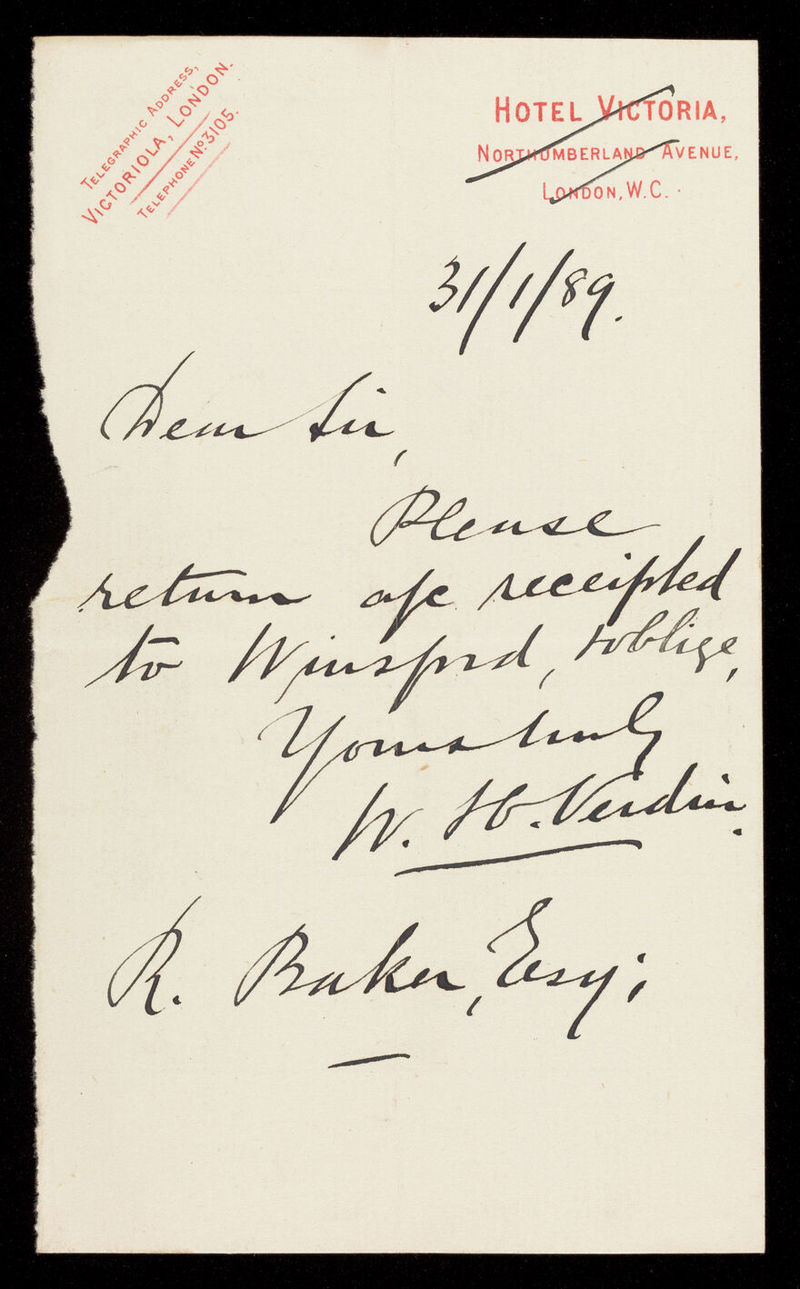 TELEGRAPHIC ADDRESS,
VICTORIOLA, LONDON.
TELEPHONE No 3105.
HOTEL VICTORIA,
NORTHUMBERLAND AVENUE,
LONDON, W.C.
31/1/89.
Dear Sir,
Please
return a/c receipted
to Winsford, & oblige,
Yours truly
W. H. Verdin.
R. Baker, Esq;